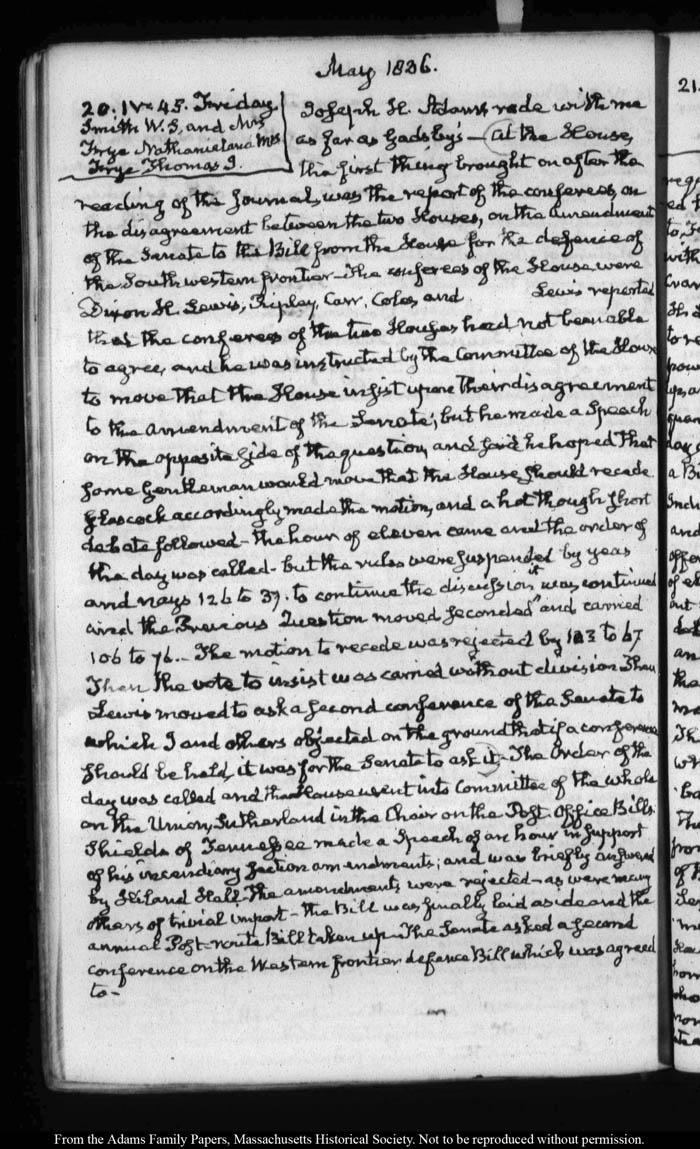 May 1836.
20. IV. 45. Friday.
Smith W. S. and Mrs
Frye Nathaniel and Mrs
Frye Thomas I.
Joseph H. Adams rode with me
as far as Gadsby's — At the House,
the first thing brought on after the
reading of the Journal, was the report of the conferees, on
the disagreement between the two Houses, on the Amendment
of the Senate to the Bill from the House for the defence of
the South western frontier — The conferees of the House were
Dixon H. Lewis, Ripley, Carr, Coles, and Lewis reported
that the conferees of the two Houses had not been able
to agree, and he was instructed by the Committee of the House
to move that the House insist upon their disagreement
to the amendment of the Senate; but he made a Speech
on the opposite side of the question, and said he hoped that
some Gentleman would move that the House should recede
Glascock accordingly made the motion, and a hot though short
debate followed — the hour of eleven came and the order of
the day was called — but the rules were suspended by yeas
and nays 126 to 37. to continue the discussion, it was continued
and the Previous Question moved seconded and carried
106 to 76. — The motion to recede was rejected by 103 to 67
Then the vote to insist was carried without division Then
Lewis moved to ask a second conference of the Senate to
which I and others objected on the ground that if a conference
should be held, it was for the Senate to ask it — The Order of the
day was called and the House went into Committee of the whole
on the Union, Sutherland in the Chair on the Post-Office Bills.
Shields of Tennessee made a Speech of an hour in support
of his incendiary faction amendments; and was briefly answered
by Hiland Hall — The amendments were rejected — as were many
others of trivial import — the Bill was finally laid aside and the
annual Post-route Bill taken up — The Senate asked a second
conference on the Western frontier defence Bill which was agreed
to —
21.
From the Adams Family Papers, Massachusetts Historical Society. Not to be reproduced without permission.